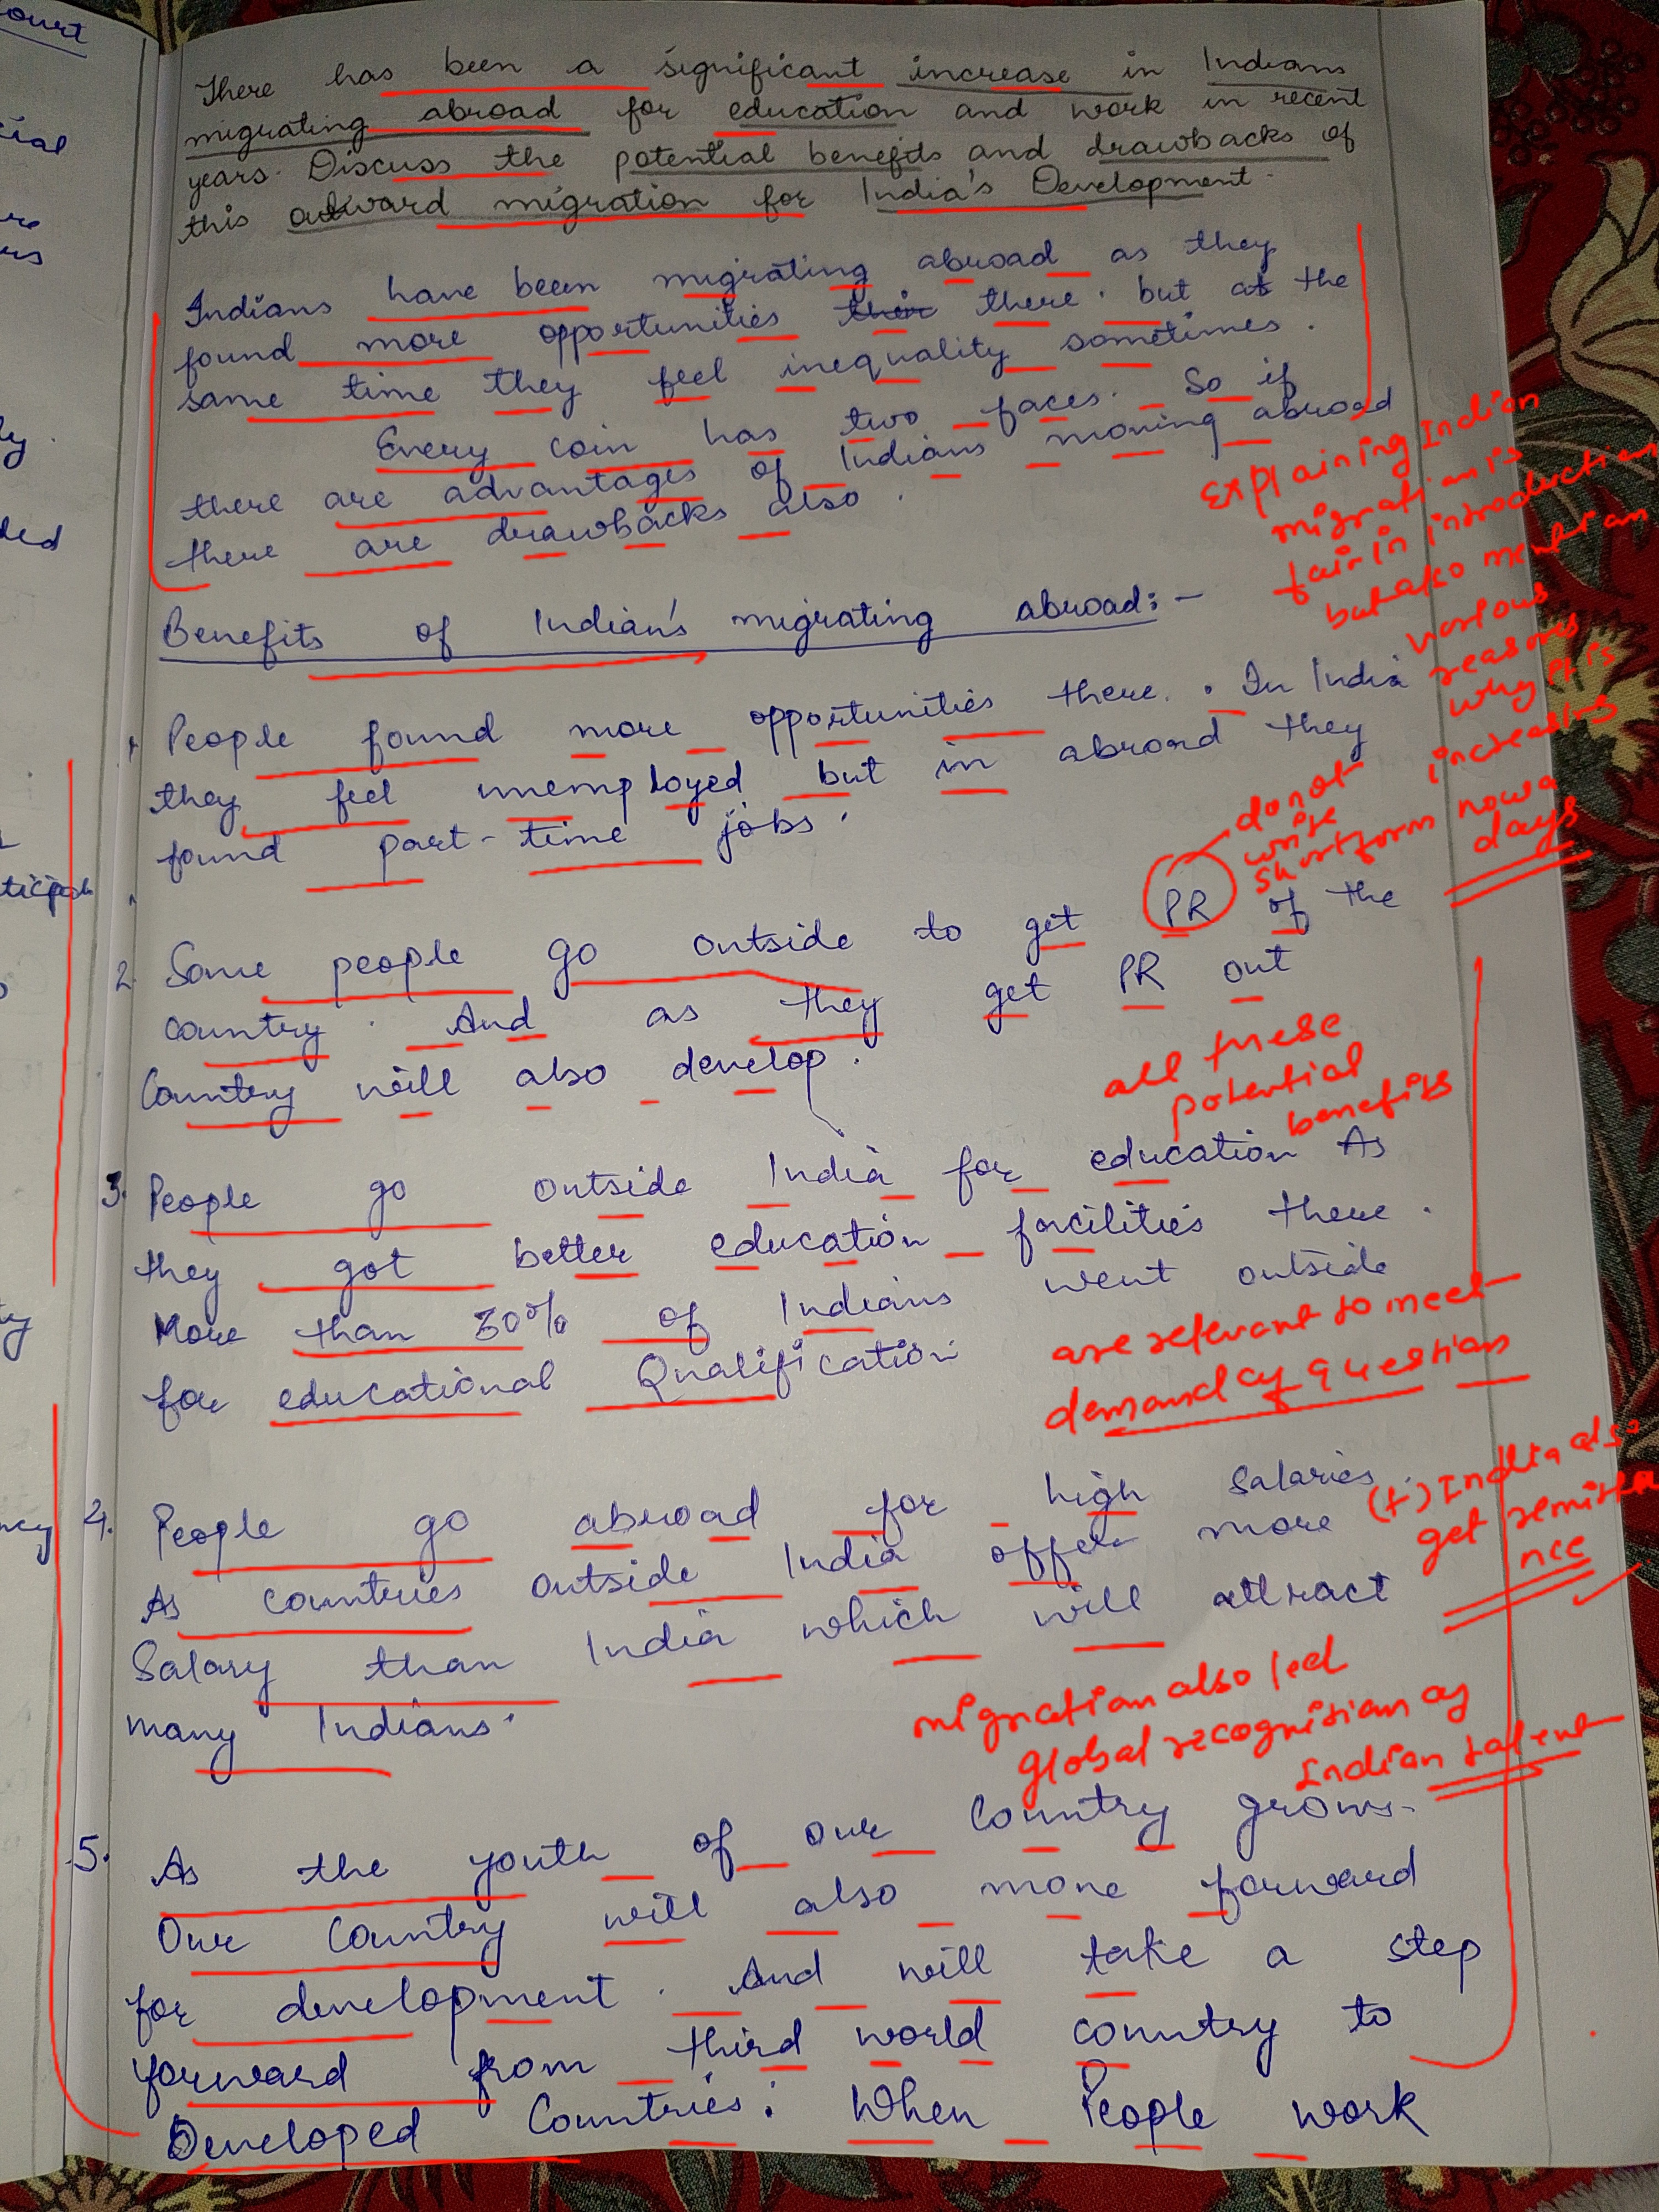 There has been a significant increase in Indians
migrating abroad for education and work in recent
years. Discuss the potential benefits and drawbacks of
this outward migration for India's Development.
Indians have been migrating abroad as they
found more opportunities their there. but at the
same time they feel inequality sometimes.
Every coin has two faces. So if
there are advantages of Indians moving abroad
there are drawbacks also.
Explaining Indian
migration is
fair in introduction
but also mention
various
reasons
why it is
increasing
nowa
days
Benefits of Indian's migrating abroad:-
1 People found more opportunities there. In India
they feel unemployed but in abroad they
found part-time jobs.
do not
write
shortform
2. Some people go outside to get PR of the
country. And as they get PR out
Country will also develop.
all these
potential
benefits
3. People go outside India for education As
they got better education facilities there.
More than 30% of Indians went outside
for educational Qualification
are relevant to meet
demand of question
4. People go abroad for high salaries.
As countries outside India offer more
Salary than India which will attract
many Indians.
(+) India also
get remitta
nce
migration also led
global recognition of
Indian talent
5. As the youth of our Country grows.
Our Country will also move forward
for development. And will take a step
forward from third world country to
Developed Countries. When People work
ourt
cial
ure
ly.
ded
ticipat
ty
ncy